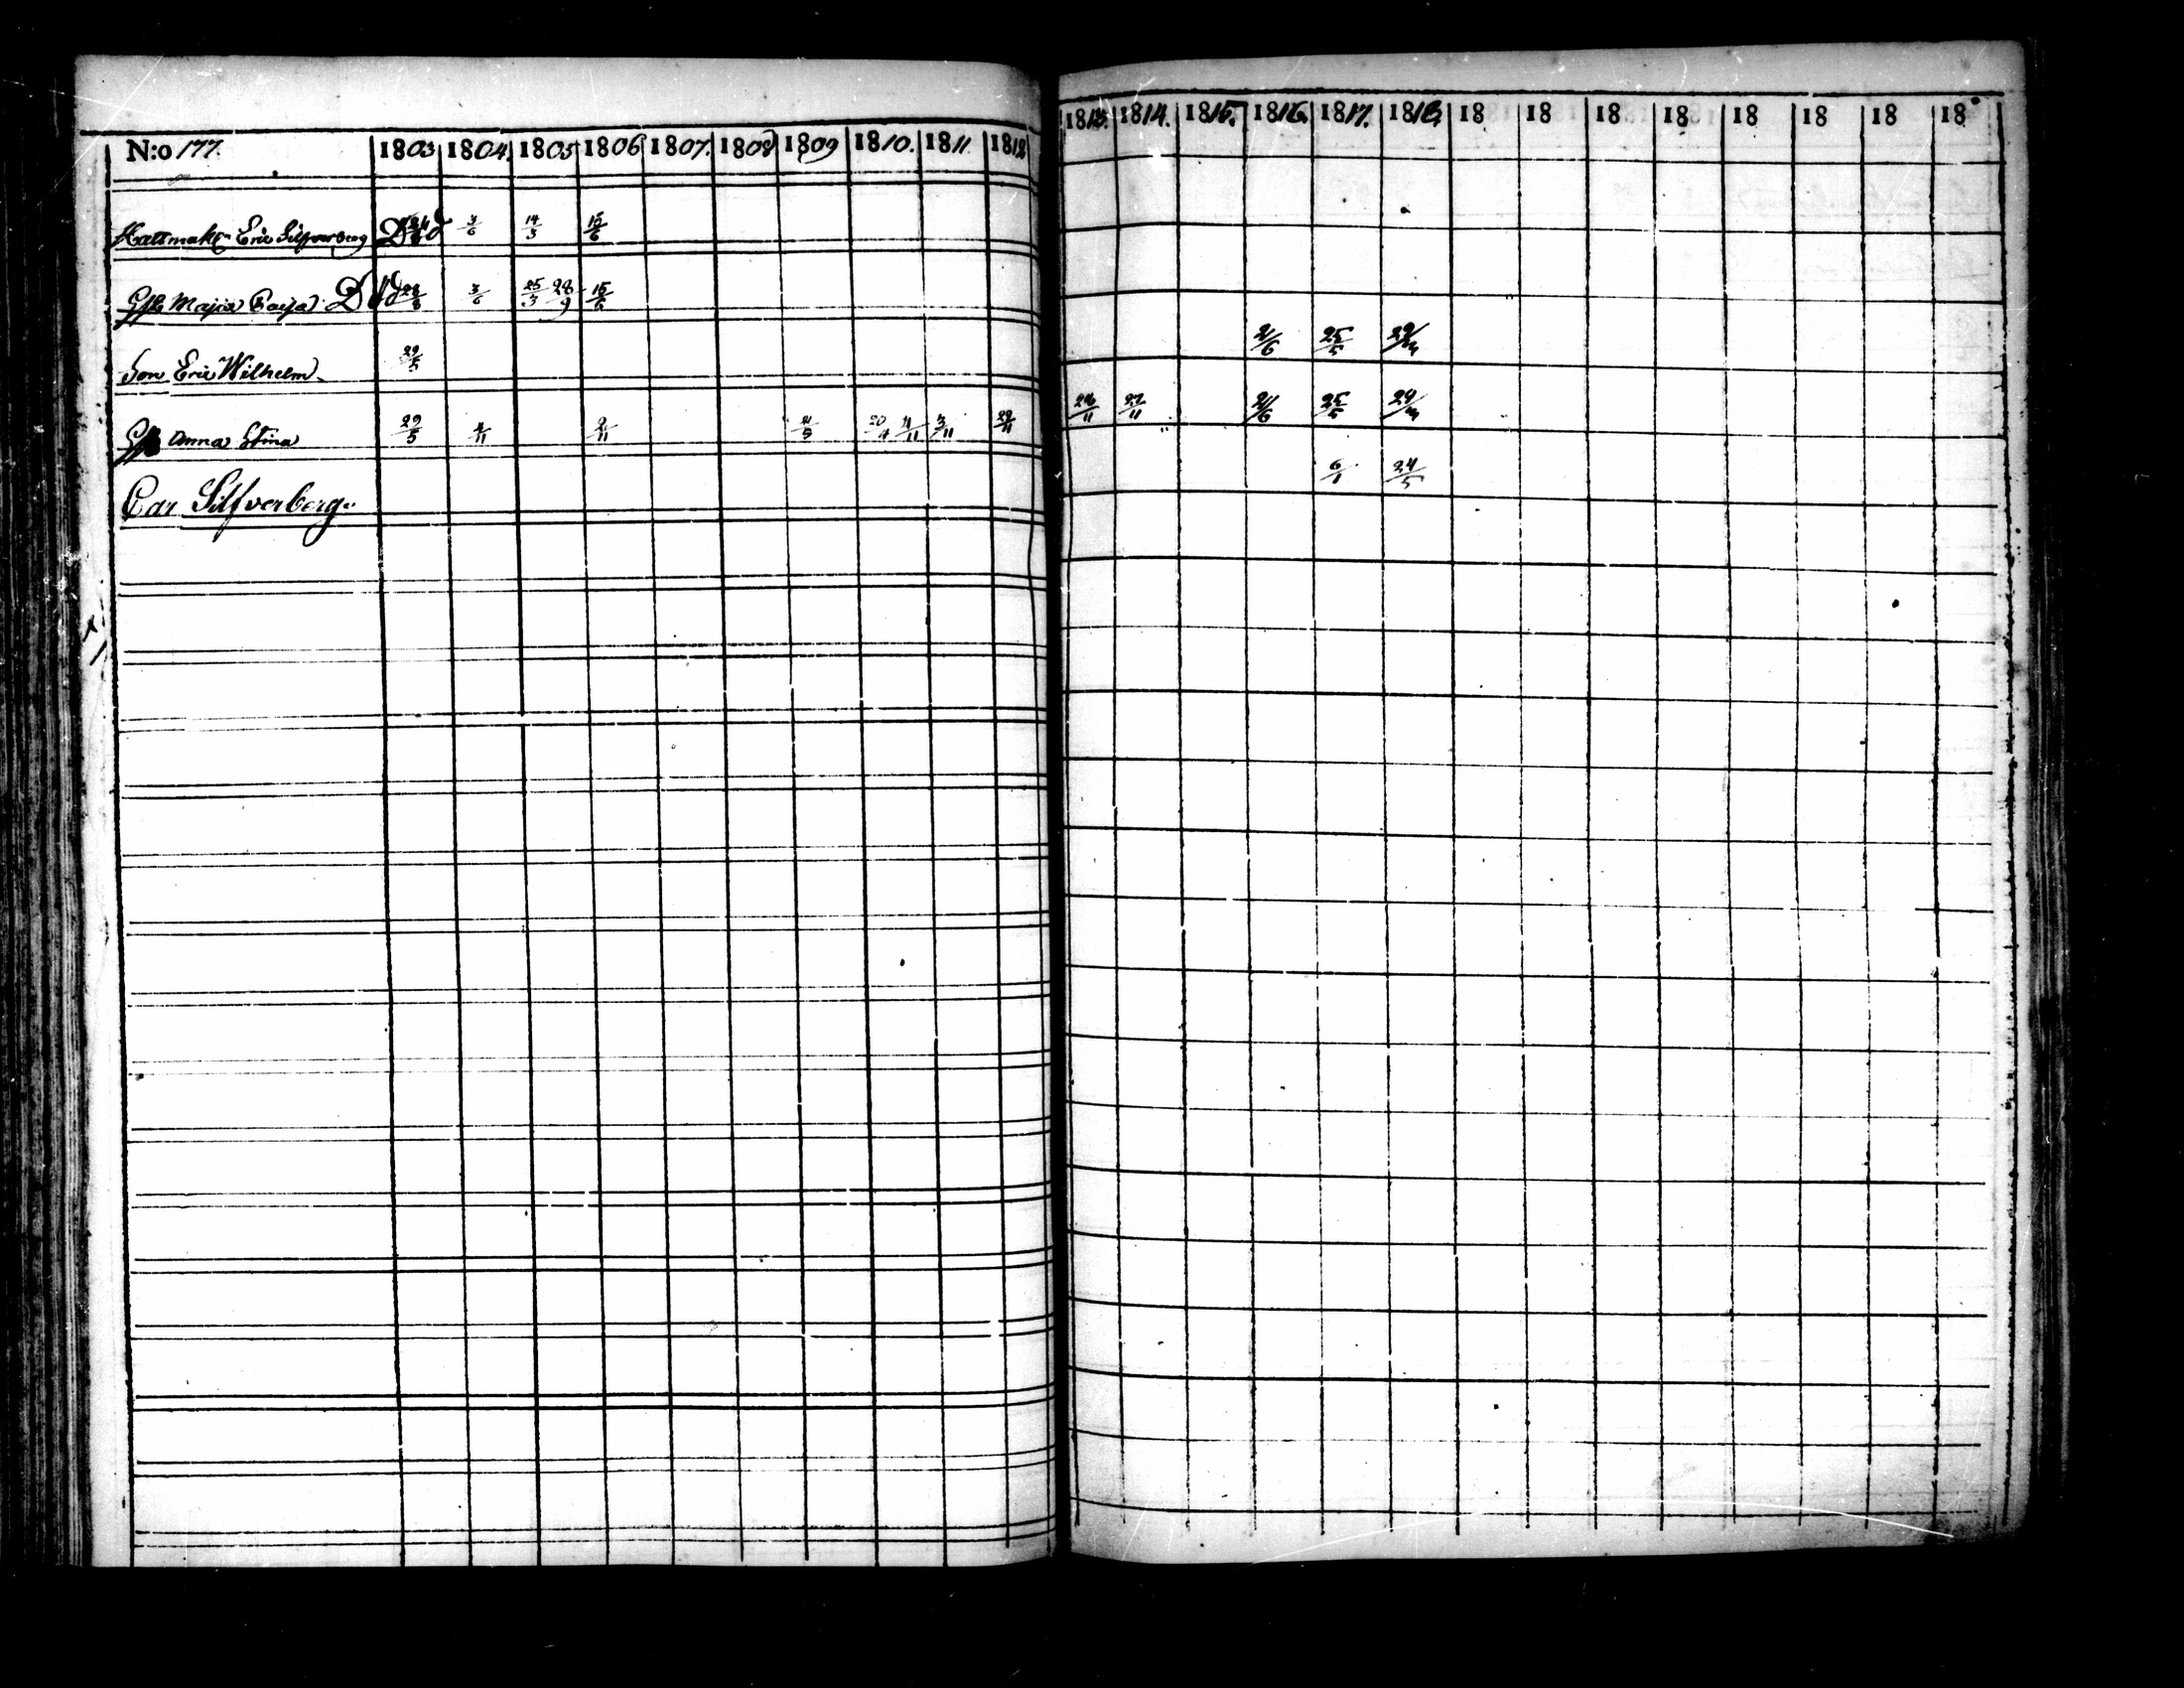 N:o 177. 1803 1804. 1805 1806 1807. 1808 1809 1810. 1811 1812
Hattmak:n Eric Silfverberg Död 3/6 14/3 15/6
Maja Caisa Död 28/8 3/6 25/3 28/9 15/6
Son Eric Wilhelm 29/5
Anna Stina 29/5 4/11 2/11 21/5 20/4 4/11 3/11 22/11
Car Silfverberg
1813. 1814. 1815. 1816. 1817. 1818. 18 18 18 18 18 18 18 18
2/6 25/5 29/3
26/11 27/11 2/6 25/5 29/3
6/1 24/5